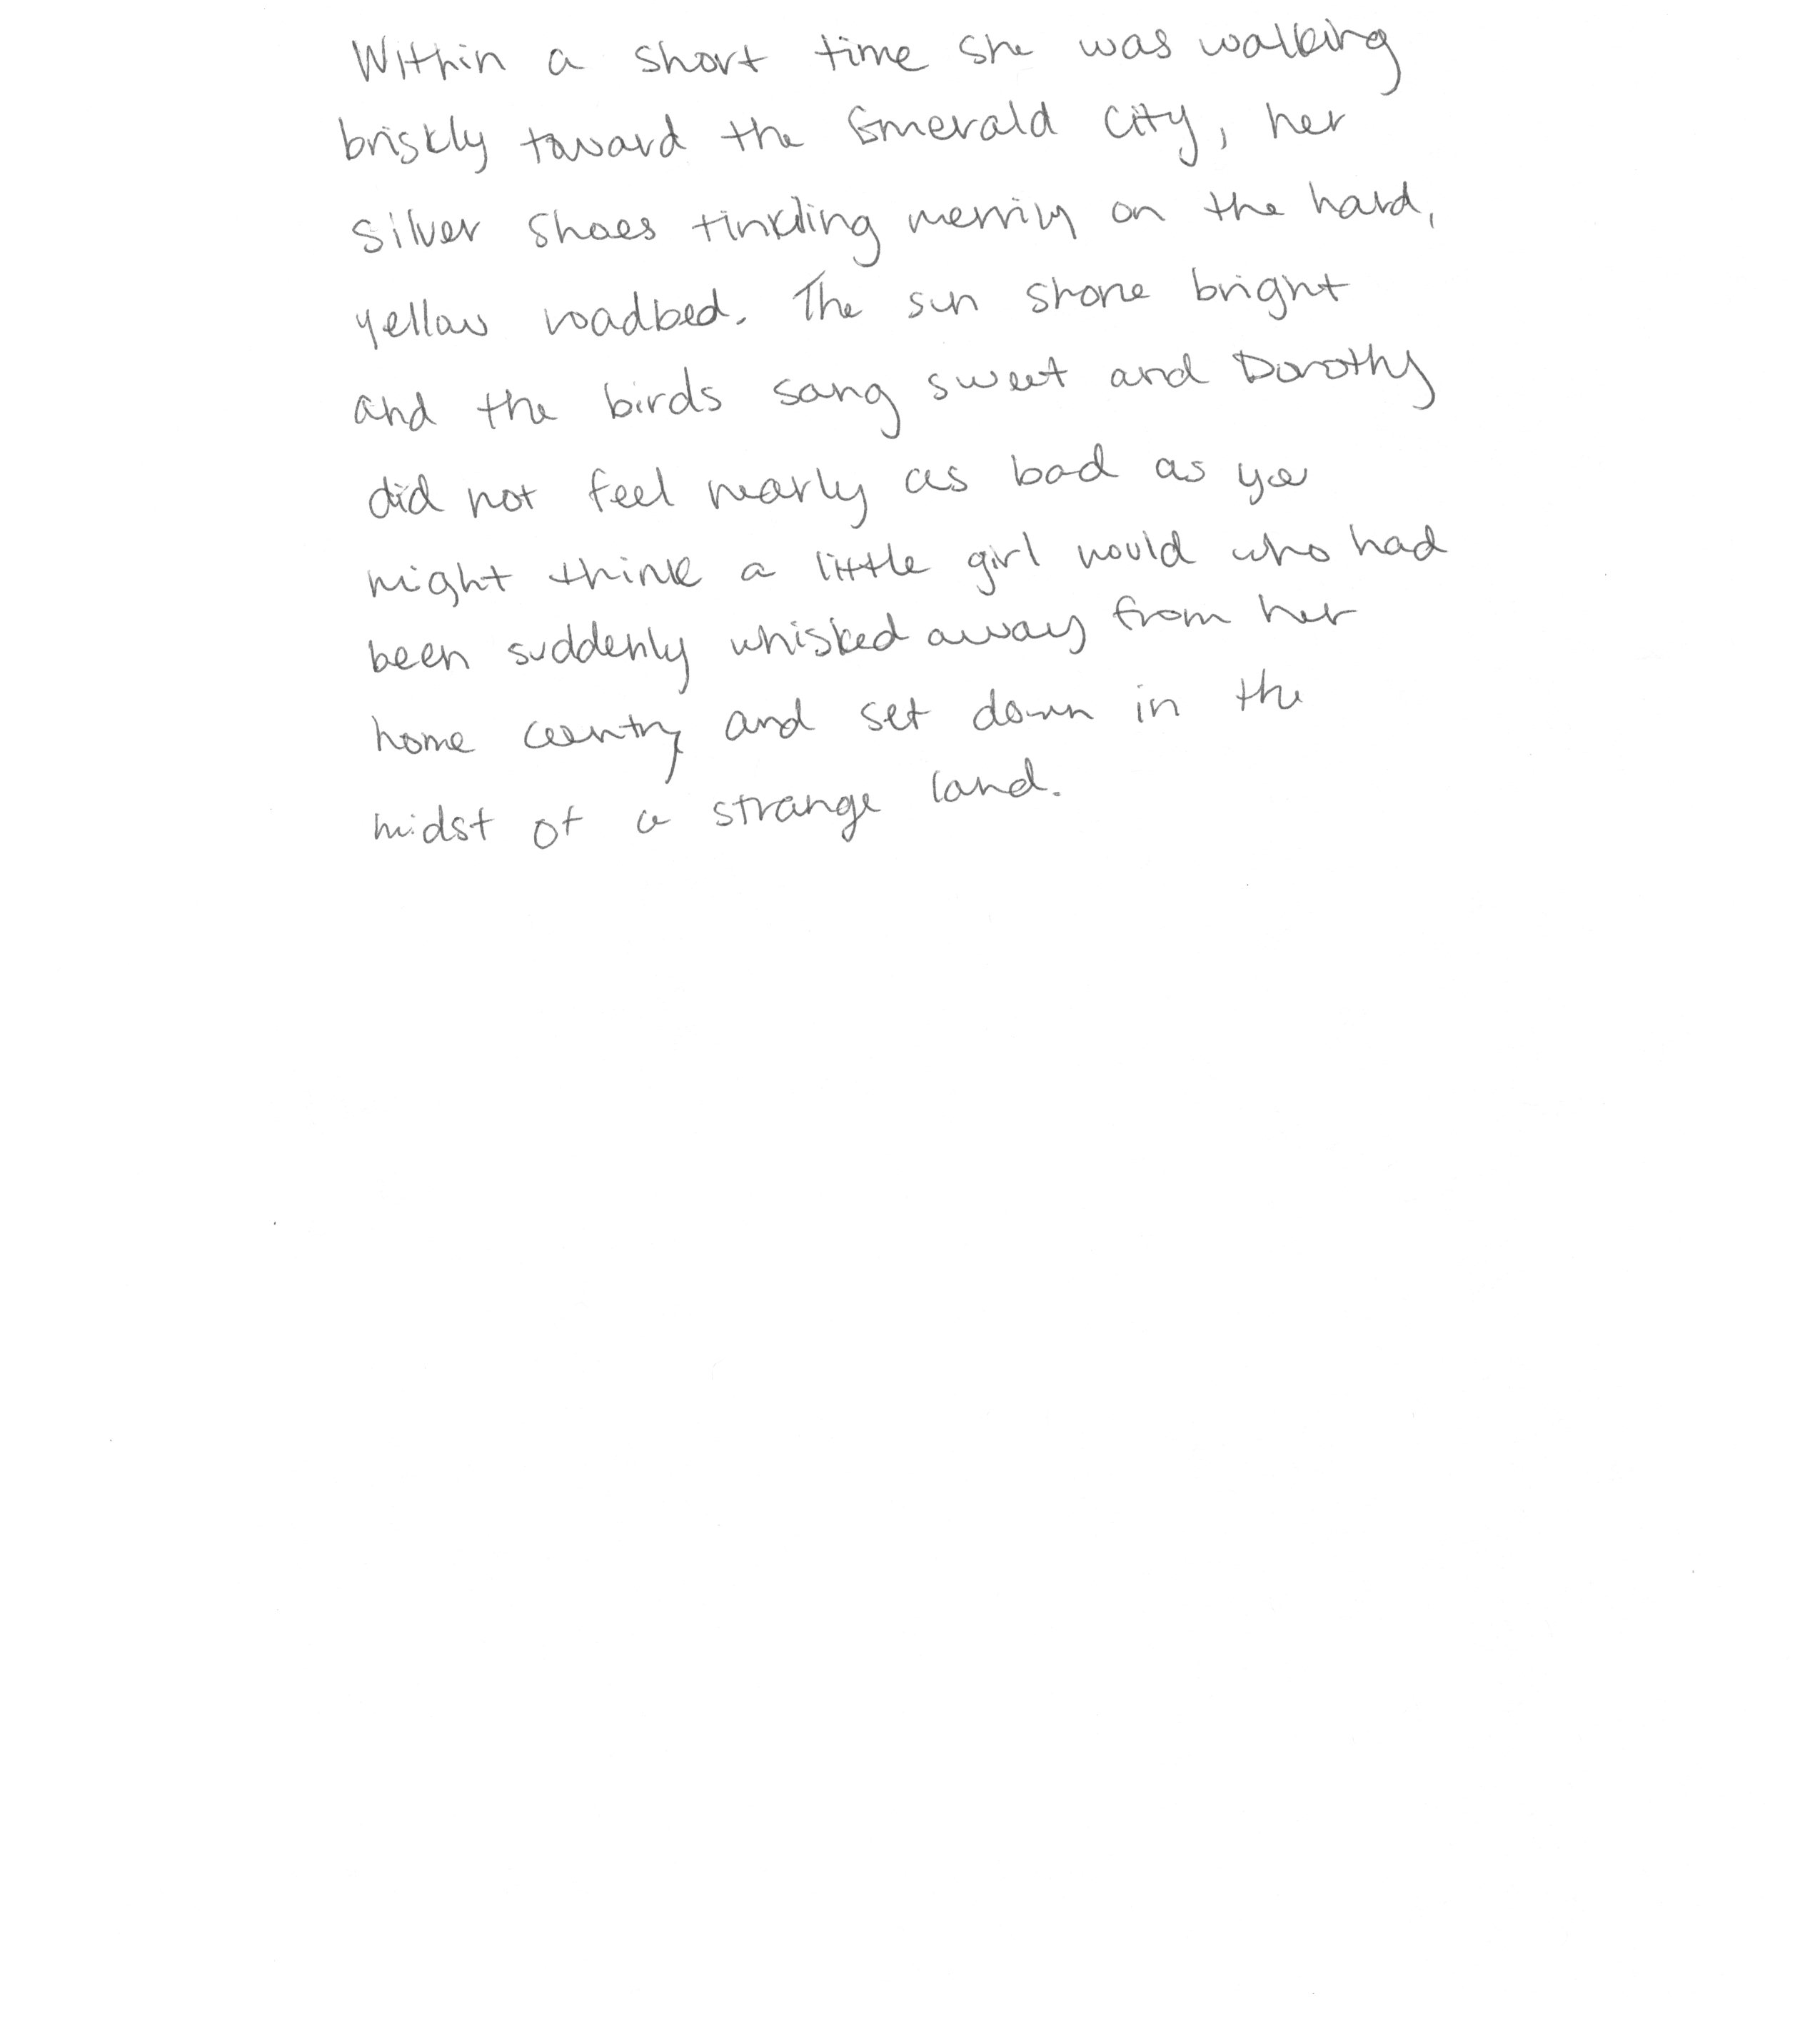 Within a short time she was walking
briskly toward the Emerald City, her
silver shoes tinkling merrily on the hard,
yellow roadbed. The sun shone bright
and the birds sang sweet and Dorothy
did not feel nearly as bad as you
might think a little girl would who had
been suddenly whisked away from her
home country and set down in the
midst of a strange land.